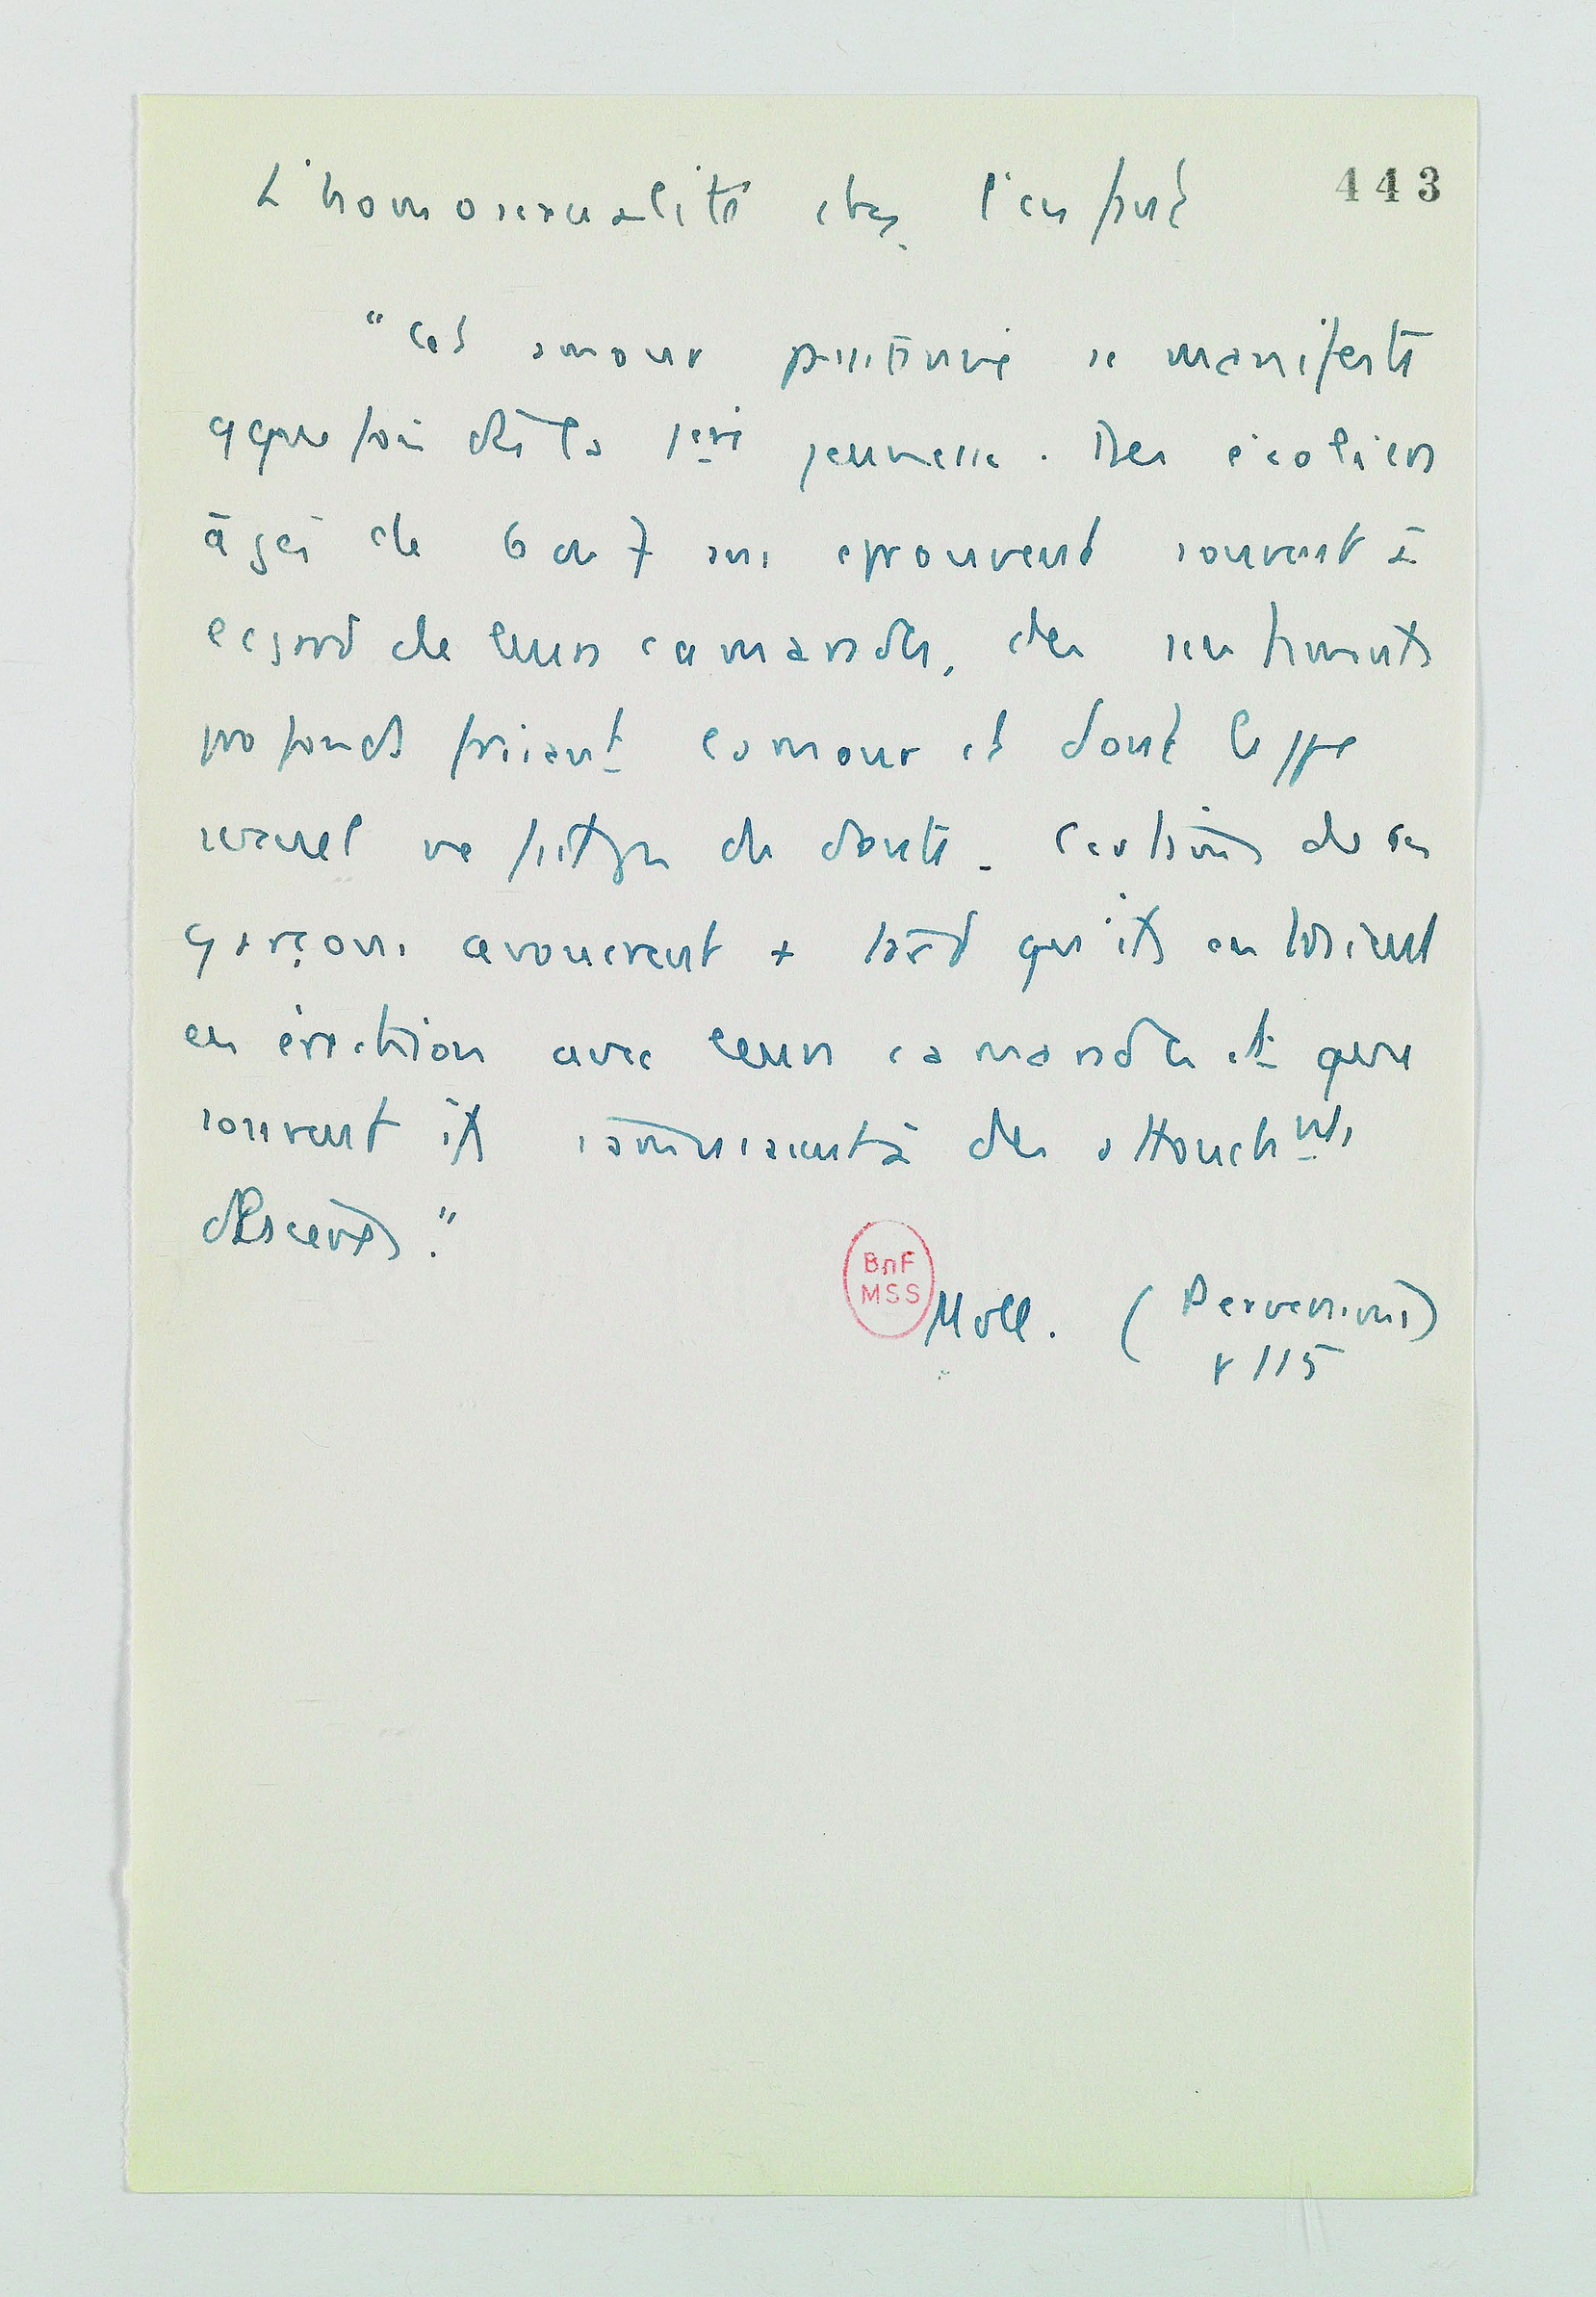 L'homosexualité chez l'enfant
443
"Cet amour passionné se manifeste
qque fois dès la 1ère jeunesse. Des écoliers
âgés de 6 ou 7 ans éprouvent souvent à
l'égard de leurs camarades, des sentiments
profonds frisant l'amour et dont le
sexuel ne fait pas de doute. Certains de ces
garçons avouèrent + tard qu'ils entraient
en érection avec leurs camarades et que
souvent ils à des attouchmts
.”
BnF
MSS
Moll. (Perversions)
p 115